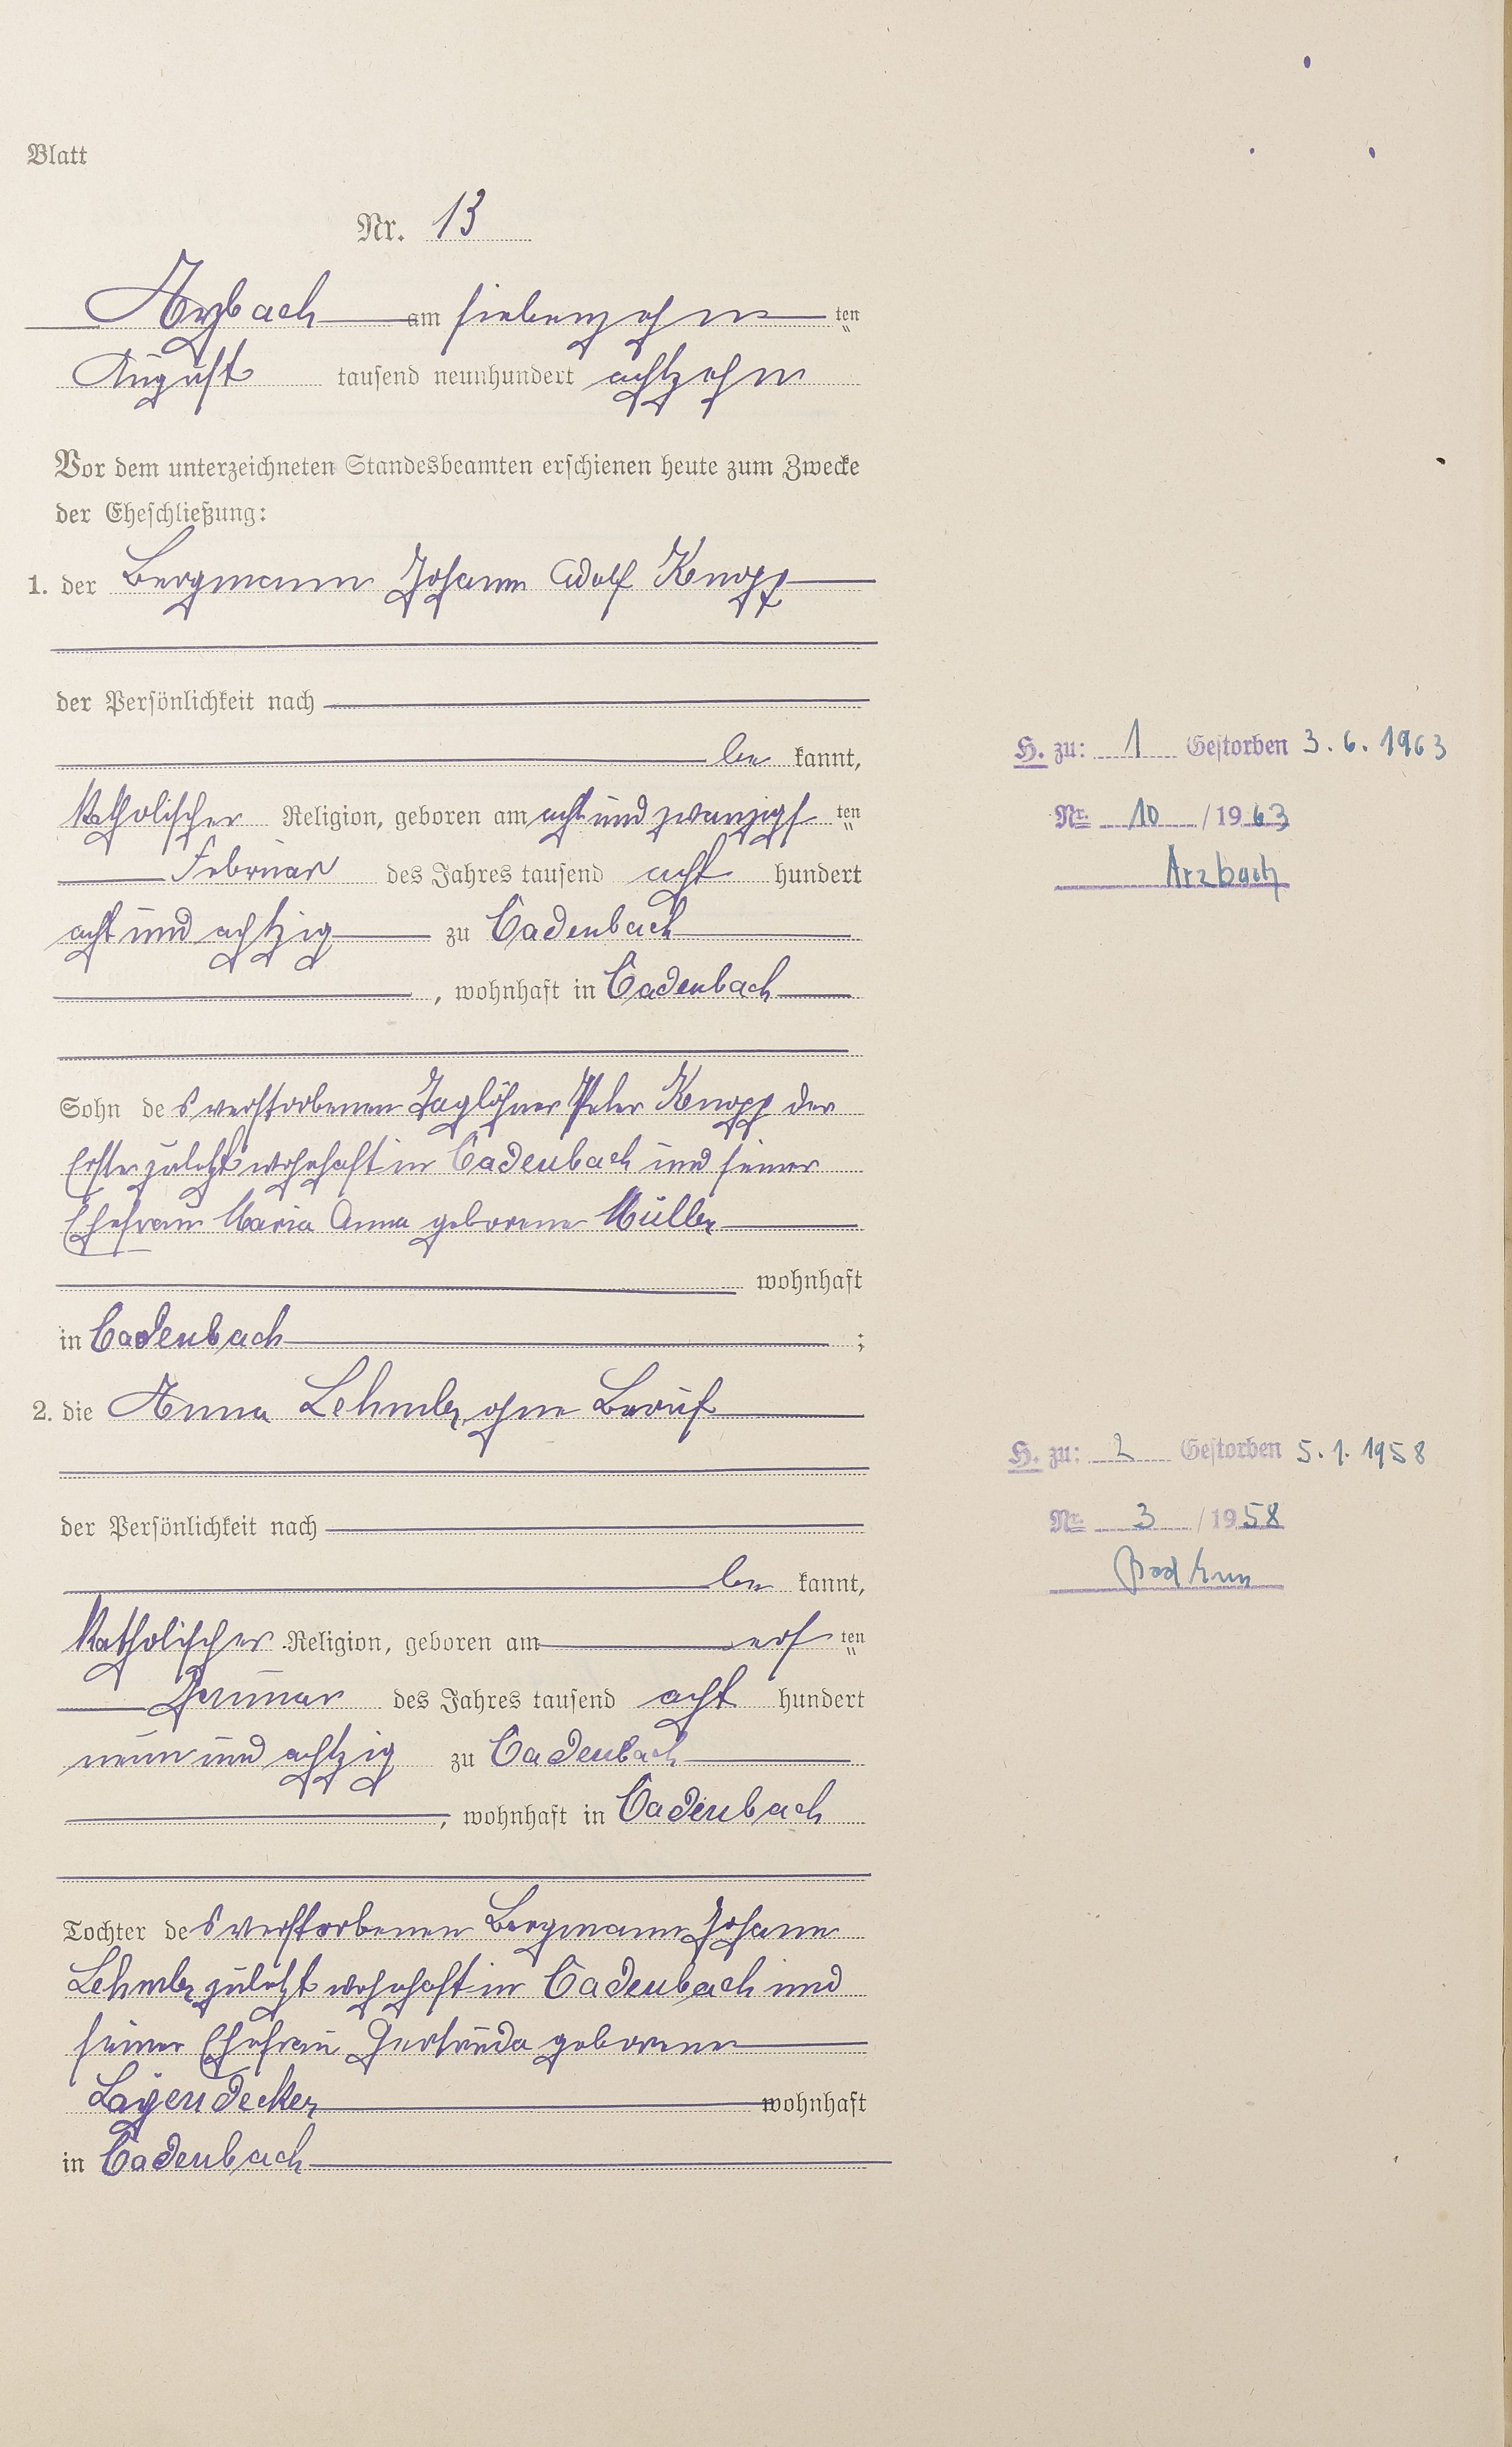 Blatt
Nr. 13
Arzbach am siebenzehn ten
August tausend neunhundert achtzehn
Vor dem unterzeichneten Standesbeamten erschienen heute zum Zwecke
der Eheschließung:
1. der Bergmann Johann Adolf Knopp
der Persönlichkeit nach
be kannt,
katholischer Religion, geboren am acht und zwanzigs ten
Februar des Jahres tausend acht hundert
acht und achtzig zu Cadenbach
, wohnhaft in Cadenbach
Sohn des verstorbenen Taglöhner Peter Knopp der
Erste zuletzt wohnhaft in Cadenbach und seiner
Ehefrau Maria Anna geborene Müller
wohnhaft
in Cadenbach ;
2. die Anna Lehmler, ohne Beruf
der Persönlichkeit nach
be kannt,
katholischer Religion, geboren am ers ten
Januar des Jahres tausend acht hundert
neun und achtzig zu Cadenbach
, wohnhaft in Cadenbach
Tochter des verstorbenen Bergmann Johann
Lehmler zuletzt wohnhaft in Cadenbach und
seiner Ehefrau Gertruda geborene
Layendecker wohnhaft
in Cadenbach
H. zu: 1 Gestorben 3.6.1963
Nr. 10 / 1963
Arzbach
H. zu: 2 Gestorben 5.1.1958
Nr. 3 / 1958
Bad Ems